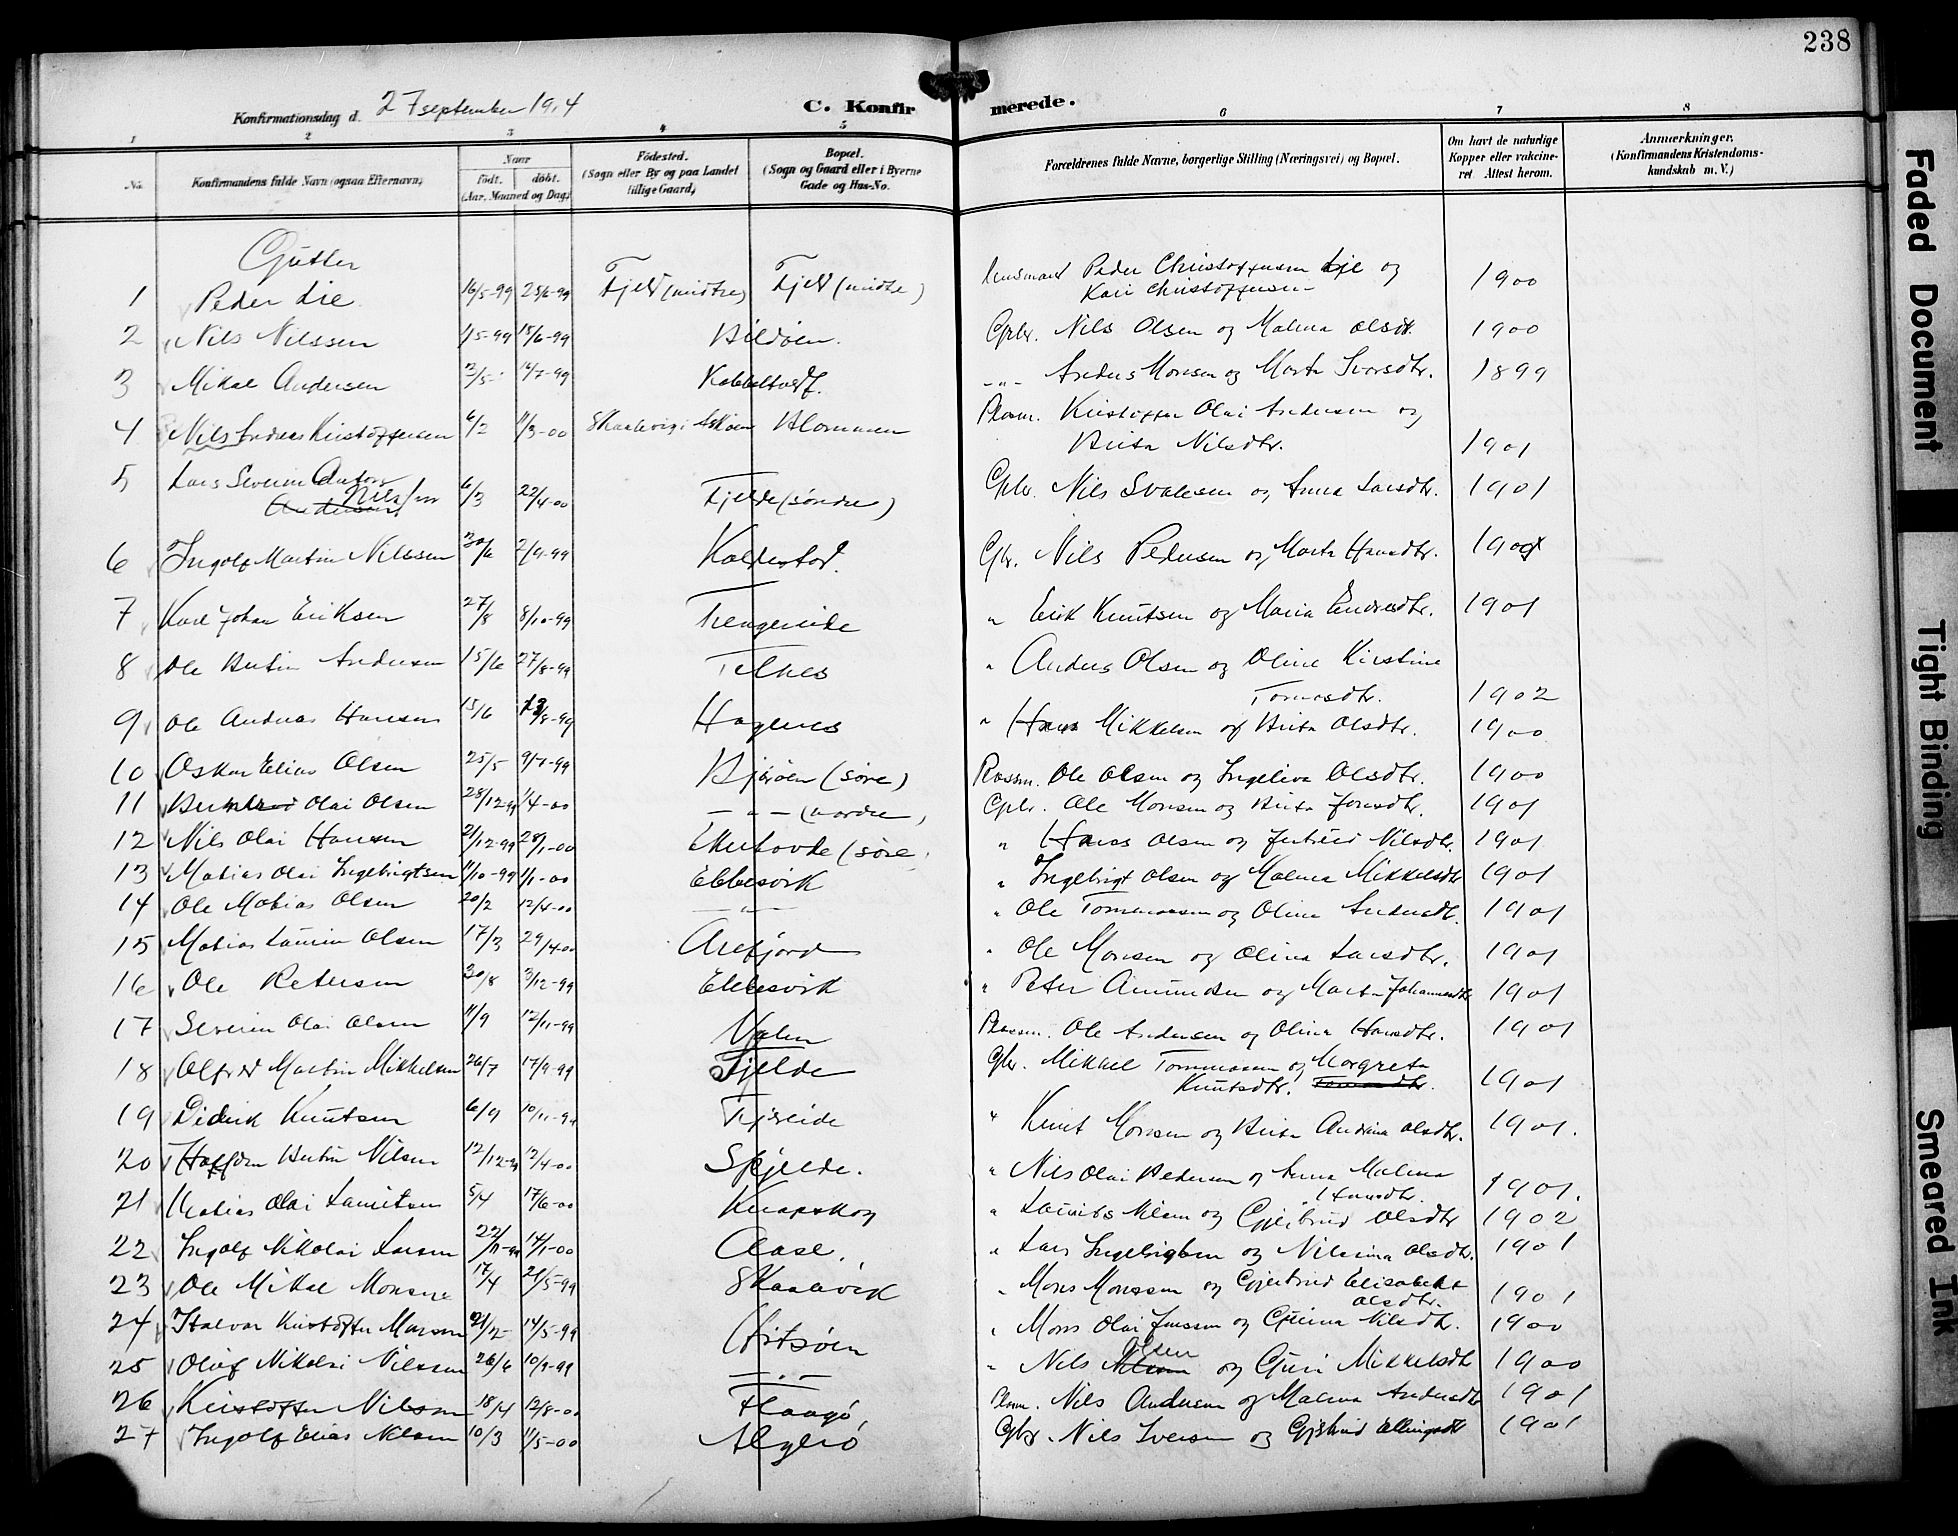 238
Konfirmationsdag d. 27 september 1914
C. Konfirmerede.
1 2 3 4 5 6 7 8
No. Konfirmandens fulde Navn (ogsaa Efternavn) Naar födt. döbt. (Aar, Maaned og Dag) Födested. (Sogn eller By og paa Landet tillige Gaard) Bopæl. (Sogn og Gaard eller i Byerne Gade og Hus-No. Forældrenes fulde Navne, borgerlige Stilling (Næringsvei) og Bopæl. Om havt de naturlige Kopper eller vakcineret Attest herom. Anmærkninger. (Konfirmandens Kristendomskundskab m. V.)
Gutter
1 Peder Lie 16/5-99 25/6-99 Fjeld (midtre) Fjeld (midtre) Lensmand Peder Christoffersen Lie og
Kari Christoffersen 1900
2 Nils Nilssen 1/5-99 15/6-99 Bildöen. Gbr. Nils Olsen og Malina Olsdt. 1900
3 Mikal Andersen 2/5- 16/7-99 Kobbeltvedt. -"- Anders Monsen og Marta Ivarsdtr. 1899
4 Nils Andreas Kristoffersen 6/2 11/3-00 Skaalevig i Askøen Blommen Plasm. Kristoffer Olai Andersen og
Brita Nilsdtr. 1901
5 Lars Severin Anton
Nilssen
Andersen 6/3 22/4-00 Fjelde (söndre) Gbr. Nils Svalesen og Anna Larsdtr. 1901
6 Ingolf Martin Nilssen 30/6 2/9-99 Koldestad. Gbr. Nils Pedersen og Marta Hansdtr. 1900
7 Karl Johan Eriksen 27/8 8/10-99 Trengereide " Erik Knutsen og Maria Endresdtr. 1901
8 Ole Bertin Andersen 15/6 27/8-99 Telnes " Anders Olsen og Oline Kirstine
Tomasdtr. 1902
9 Ole Andreas Hansen 15/6 13/8-99 Hagenes " Hans Mikkelsen og Brita Olsdtr. 1900
10 Oskar Elias Olsen 25/5 9/7-99 Bjøröen (søre) Plassm. Ole Olsen og Ingeliva Olsdtr. 1900
11 Olai Olsen 28/12-99 1/4-00 - " - (nordre) Gbr. Ole Monsen og Brita Jonsdtr. 1901
12 Nils Olai Hansen 21/12-99 28/1-00 Ekerhovde (søre) " Hans Olsen og Jertrud Nilsdtr. 1901
13 Matias Olai Ingebrigtsen 11/10-99 1/1-00 Ebbesvik " Ingebrigt Olsen og Malina Mikkelsdtr 1901
14 Ole Matias Olsen 20/2 12/4-00 - " - " Ole Tommassen og Oline Andersdt. 1901
15 Matias Laurin Olsen 17/3 29/4-00 Arefjord " Ole Monsen og Olina Larsdtr. 1901
16 Ole Petersen 30/8 3/12-99 Ebbesvik " Peter Amundsen og Marta Johannesdtr 1901
17 Severin Olai Olsen 11/9 12/11-99 Valen Plassm. Ole Andersen og Olina Hansdtr. 1901
18 Alfred Martin Mikkelsen 26/7 17/9-99 Fjelde Gbr. Mikael Tommassen og Margreta
Knutsdtr. 1901
19 Didrik Knutsen 6/9 10/11-99 Fjæreide " Knut Monsen og Brita Andrina Olsdtr. 1901.
20 Bertin Nilsen 12/12-99 12/4-00 Spjelde. " Nils Olai Pedersen og Anna Malina
Hansdtr. 1901.
21 Matias Olai Lauritsen 5/4 17/6-00 Knapskog " Laurits Nilsen og Gjertrud Olsdtr 1902
22 Ingolf Nikolai Larsen 22/11-99 14/1-00 Aase. " Lars Ingebrigtsen og Nilsina Olsdtr. 1901
23 Ole Mikal Monsen 17/4 21/5-99 Skaalevik " Mons Monssen og Gjertrud Elisabeth
Olsdtr. 1901
24 Halvor Kristoffer Monsen 21/2- 14/5-99 Geitsöen " Mons Olai Jenssen og Gurina Nilsdtr. 1900
25 Oluf Nikolai Nilssen 26/6 10/9-99 - " - " Nils Olsen og Guri Mikkelsdtr 1900
26 Kristoffer Nilsen 18/4 12/8-00 Flaagö Plassm. Nils Andersen og Malina Andersdtr 1901
27 Ingolf Elias Nilsen 10/3 11/5-00 Algerö Gbr. Nils Iversen og Gjertrud Ellingsdtr 1901
Faded Document
Tight Binding
Smeared Ink